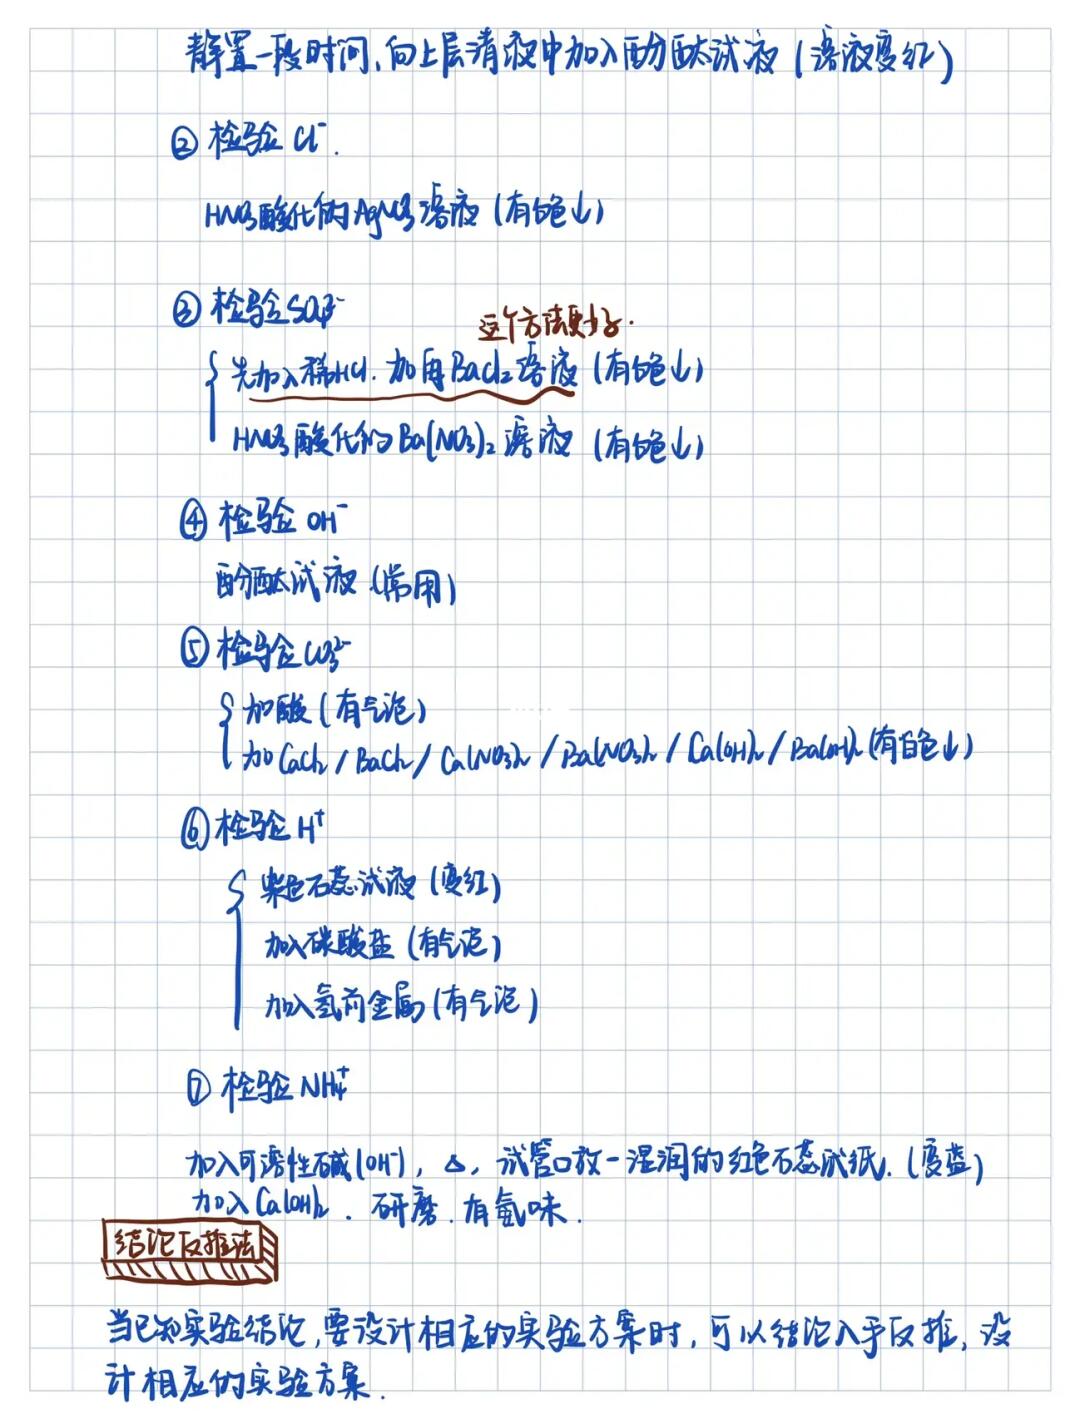 静置一段时间,向上层清液中加入酚酞试液(溶液变红)
② 检验 Cl⁻.
HNO₃酸化的AgNO₃溶液(有白色↓)
③ 检验SO₄²⁻
这个方法更好.
先加入稀HCl.加再BaCl₂溶液(有白色↓)
HNO₃酸化的Ba(NO₃)₂溶液(有白色↓)
④ 检验 OH⁻
酚酞试液(常用)
⑤ 检验CO₃²⁻
加酸(有气泡)
加CaCl₂/BaCl₂/Ca(NO₃)₂/Ba(NO₃)₂/Ca(OH)₂/Ba(OH)₂(有白色↓)
⑥ 检验H⁺
紫色石蕊试液(变红)
加入碳酸盐(有气泡)
加入氢前金属(有气泡)
⑦ 检验NH₄⁺
加入可溶性碱(OH⁻),△,试管口放一湿润的红色石蕊试纸.(变蓝)
加入Ca(OH)₂.研磨.有氨味.
结论反推法
当已知实验结论,要设计相应的实验方案时,可以结论入手反推,设
计相应的实验方案.